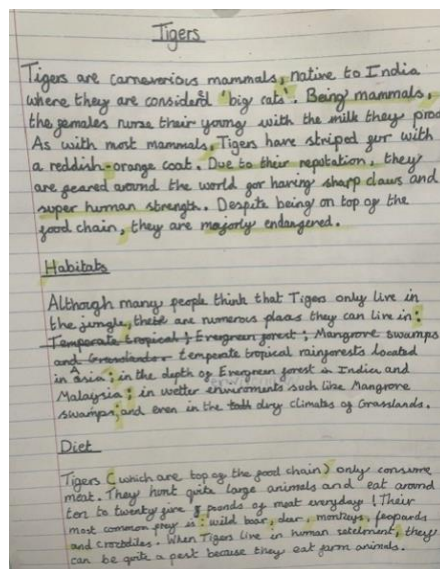 Tigers
Tigers are carneverious mammals, native to India
where they are considerd 'big cats'. Being mammals,
the females nurse their young with the milk they prod
As with most mammals, Tigers have striped fur with
a reddish-orange coat. Due to their reputation, they
are feared around the world for having sharp claws and
super human strength. Despite being on top of the
food chain, they are majorly endangered.
Habitats
Although many people think that Tigers only live in
the jungle, there are numerous places they can live in:
Temperate tropical Evergreen forest; Mangrove swamps
and Grasslands. temperate tropical rainforests located
in Asia; in the depth of Evergreen forest in India and
Malaysia; in wetter enviroments such like Mangrove
swamps; and even in the dry climates of Grasslands.
Diet
Tigers (which are top of the food chain) only consume
meat. They hunt quite large animals and eat around
ten to twenty five pounds of meat everyday! Their
most common prey is: wild boar, deer, monkeys, leopards
and Crocodiles. When Tigers live in human setelment, they
can be quite a pest because they eat farm animals.